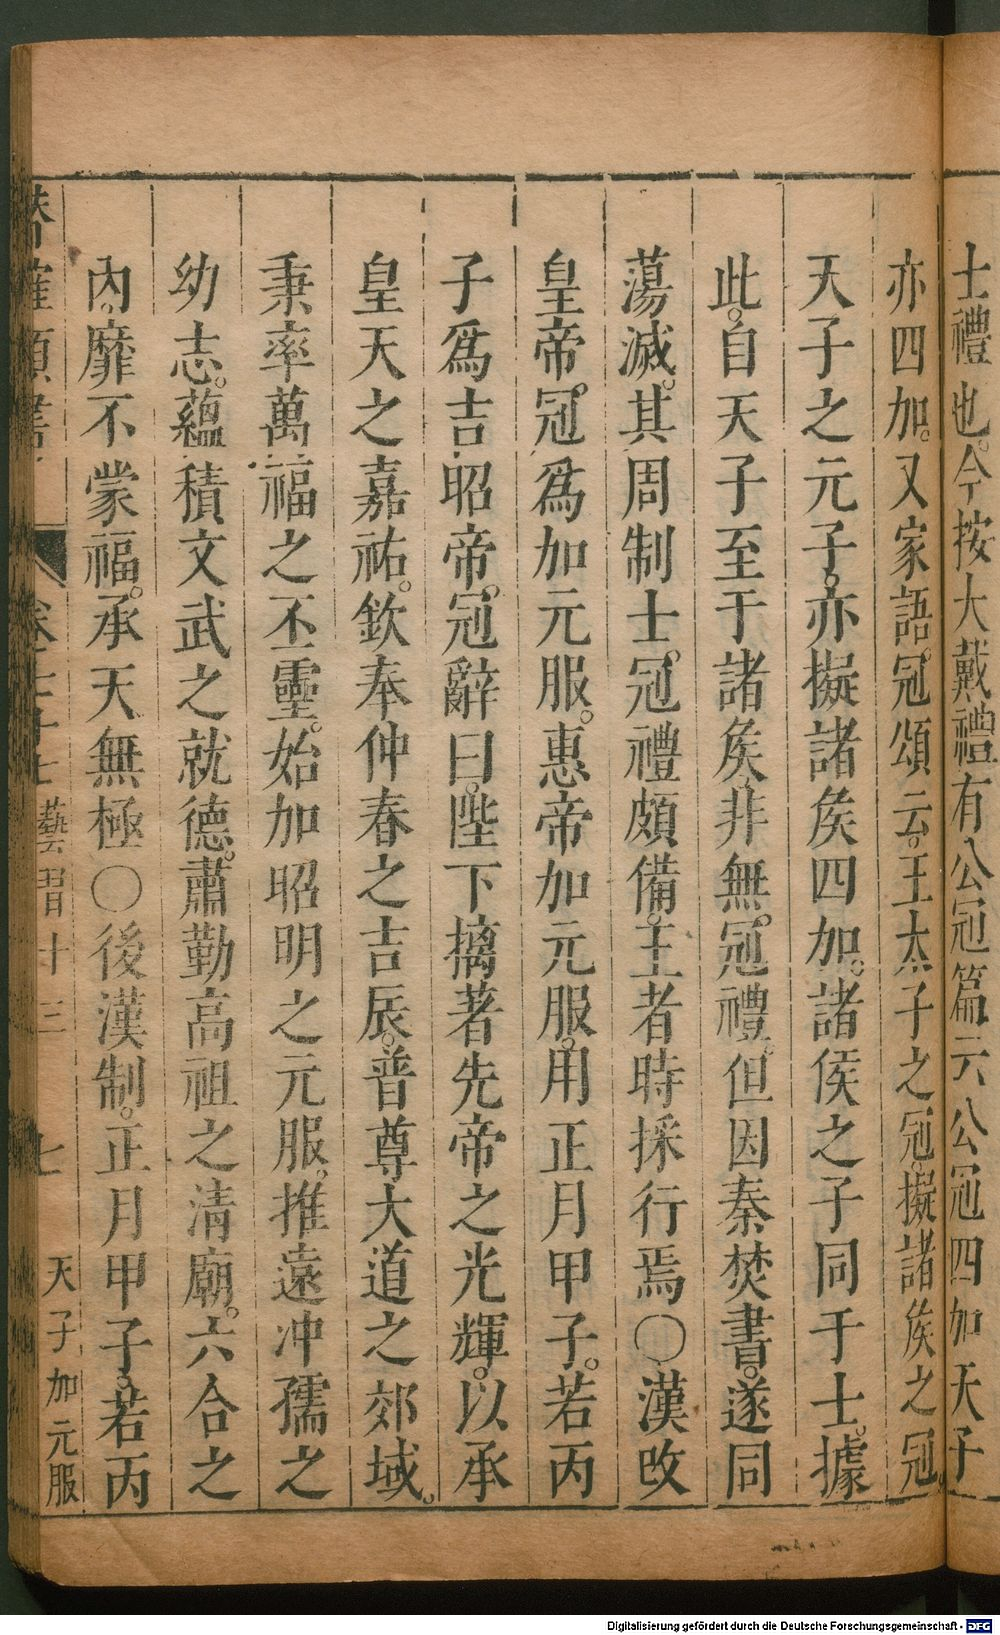 士禮也。今按大戴禮有公冠篇云公冠四加天子
亦四加。又家語冠頌云。王太子之冠。擬諸侯之冠。
天子之元子。亦擬諸侯四加。諸侯之子同于士。據
此。自天子至于諸侯。非無冠禮。但因秦焚書。遂同
蕩滅。其周制士冠禮頗備。王者時採行焉〇漢改
皇帝冠爲加元服。惠帝加元服。用正月甲子。若丙
子爲吉。昭帝冠辭曰。陛下摛著先帝之光輝。以承
皇天之嘉祐。欽奉仲春之吉辰。普尊大道之郊域。
秉率萬福之丕靈。始加昭明之元服。推遠冲孺之
幼志。蘊積文武之就德。肅勤高祖之清廟。六合之
內。靡不蒙福。承天無極〇後漢制。正月甲子。若丙
卷七十七 藝習十三 七 天子加元服
Digitalisierung gefördert durch die Deutsche Forschungsgemeinschaft - DFG